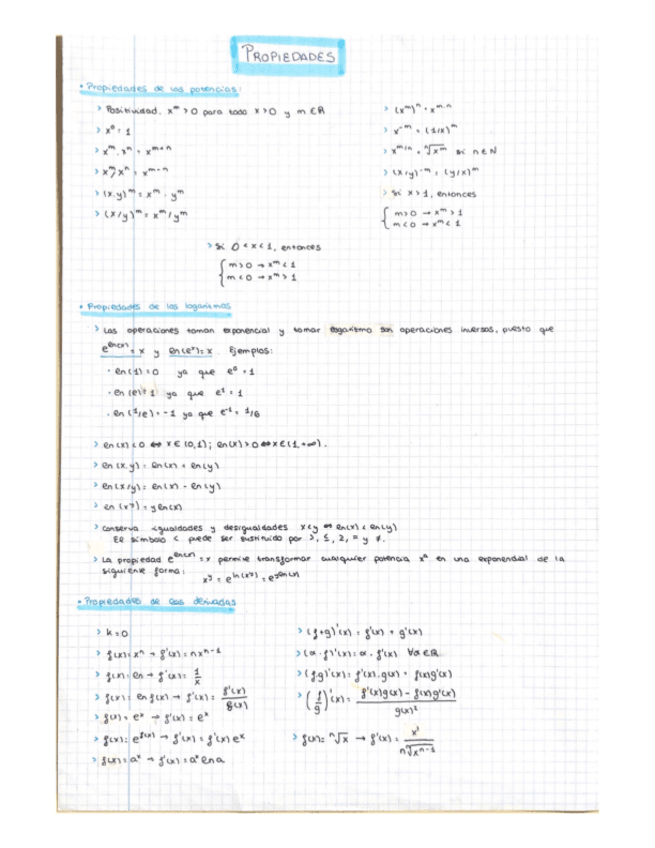 PROPIEDADES
• Propiedades de las potencias:
> Positividad. xᵐ > 0 para todo x > 0 y m ∈ ℝ
> x⁰ = 1
> xᵐ · xⁿ = xᵐ⁺ⁿ
> xᵐ/xⁿ = xᵐ⁻ⁿ
> (x·y)ᵐ = xᵐ · yᵐ
> (x/y)ᵐ = xᵐ/yᵐ
> (xᵐ)ⁿ = xᵐ·ⁿ
> x⁻ᵐ = (1/x)ᵐ
> x^(m/n) = ⁿ√xᵐ si n ∈ N
> (x/y)⁻ᵐ = (y/x)ᵐ
> Si x > 1, entonces
{ m > 0 → xᵐ > 1
m < 0 → xᵐ < 1
> Si 0 < x < 1, entonces
{ m > 0 → xᵐ < 1
m < 0 → xᵐ > 1
• Propiedades de los logaritmos
> Las operaciones toman exponencial y tomar logaritmo son operaciones inversas, puesto que
e^(ln(x)) = x y ln(eˣ) = x. Ejemplos:
· ln(1) = 0 ya que e⁰ = 1
· ln(e) = 1 ya que e¹ = 1
· ln(1/e) = -1 ya que e⁻¹ = 1/e
> ln(x) < 0 ⇔ x ∈ (0,1); ln(x) > 0 ⇔ x ∈ (1,+∞).
> ln(x·y) = ln(x) + ln(y)
> ln(x/y) = ln(x) - ln(y)
> ln(xʸ) = y ln(x)
> Conserva igualdades y desigualdades x < y ⇔ ln(x) < ln(y)
El símbolo < puede ser sustituido por >, ≤, ≥, = y ≠.
> La propiedad e^(ln(x)) = x permite transformar cualquier potencia xᵃ en una exponencial de la
siguiente forma:
xʸ = e^(ln(xʸ)) = e^(y ln(x))
• Propiedades de las derivadas
> k = 0
> f(x) = xⁿ → f'(x) = nxⁿ⁻¹
> f(x) = ln → f'(x) = 1/x
> f(x) = ln f(x) → f'(x) = f'(x)/f(x)
> f(x) = eˣ → f'(x) = eˣ
> f(x) = e^(f(x)) → f'(x) = f'(x) eˣ
> f(x) = aˣ → f'(x) = aˣ ln a
> (f+g)'(x) = f'(x) + g'(x)
> (α·f)'(x) = α · f'(x) ∀α ∈ ℝ
> (f·g)'(x) = f'(x)·g(x) + f(x)g'(x)
> (f/g)'(x) = (f'(x)g(x) - f(x)g'(x))/g(x)²
> f(x) = ⁿ√x → f'(x) = x'/(n ⁿ√xⁿ⁻¹)